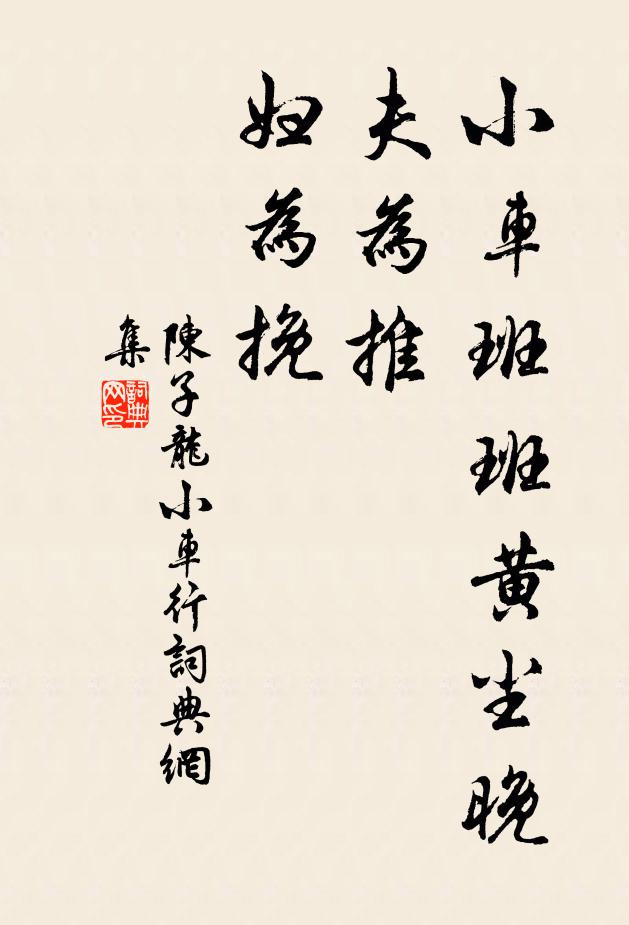 小車班班黄尘晚
夫為推
婦為挽
陳子龍小車行詞典網
集
詞典
网印